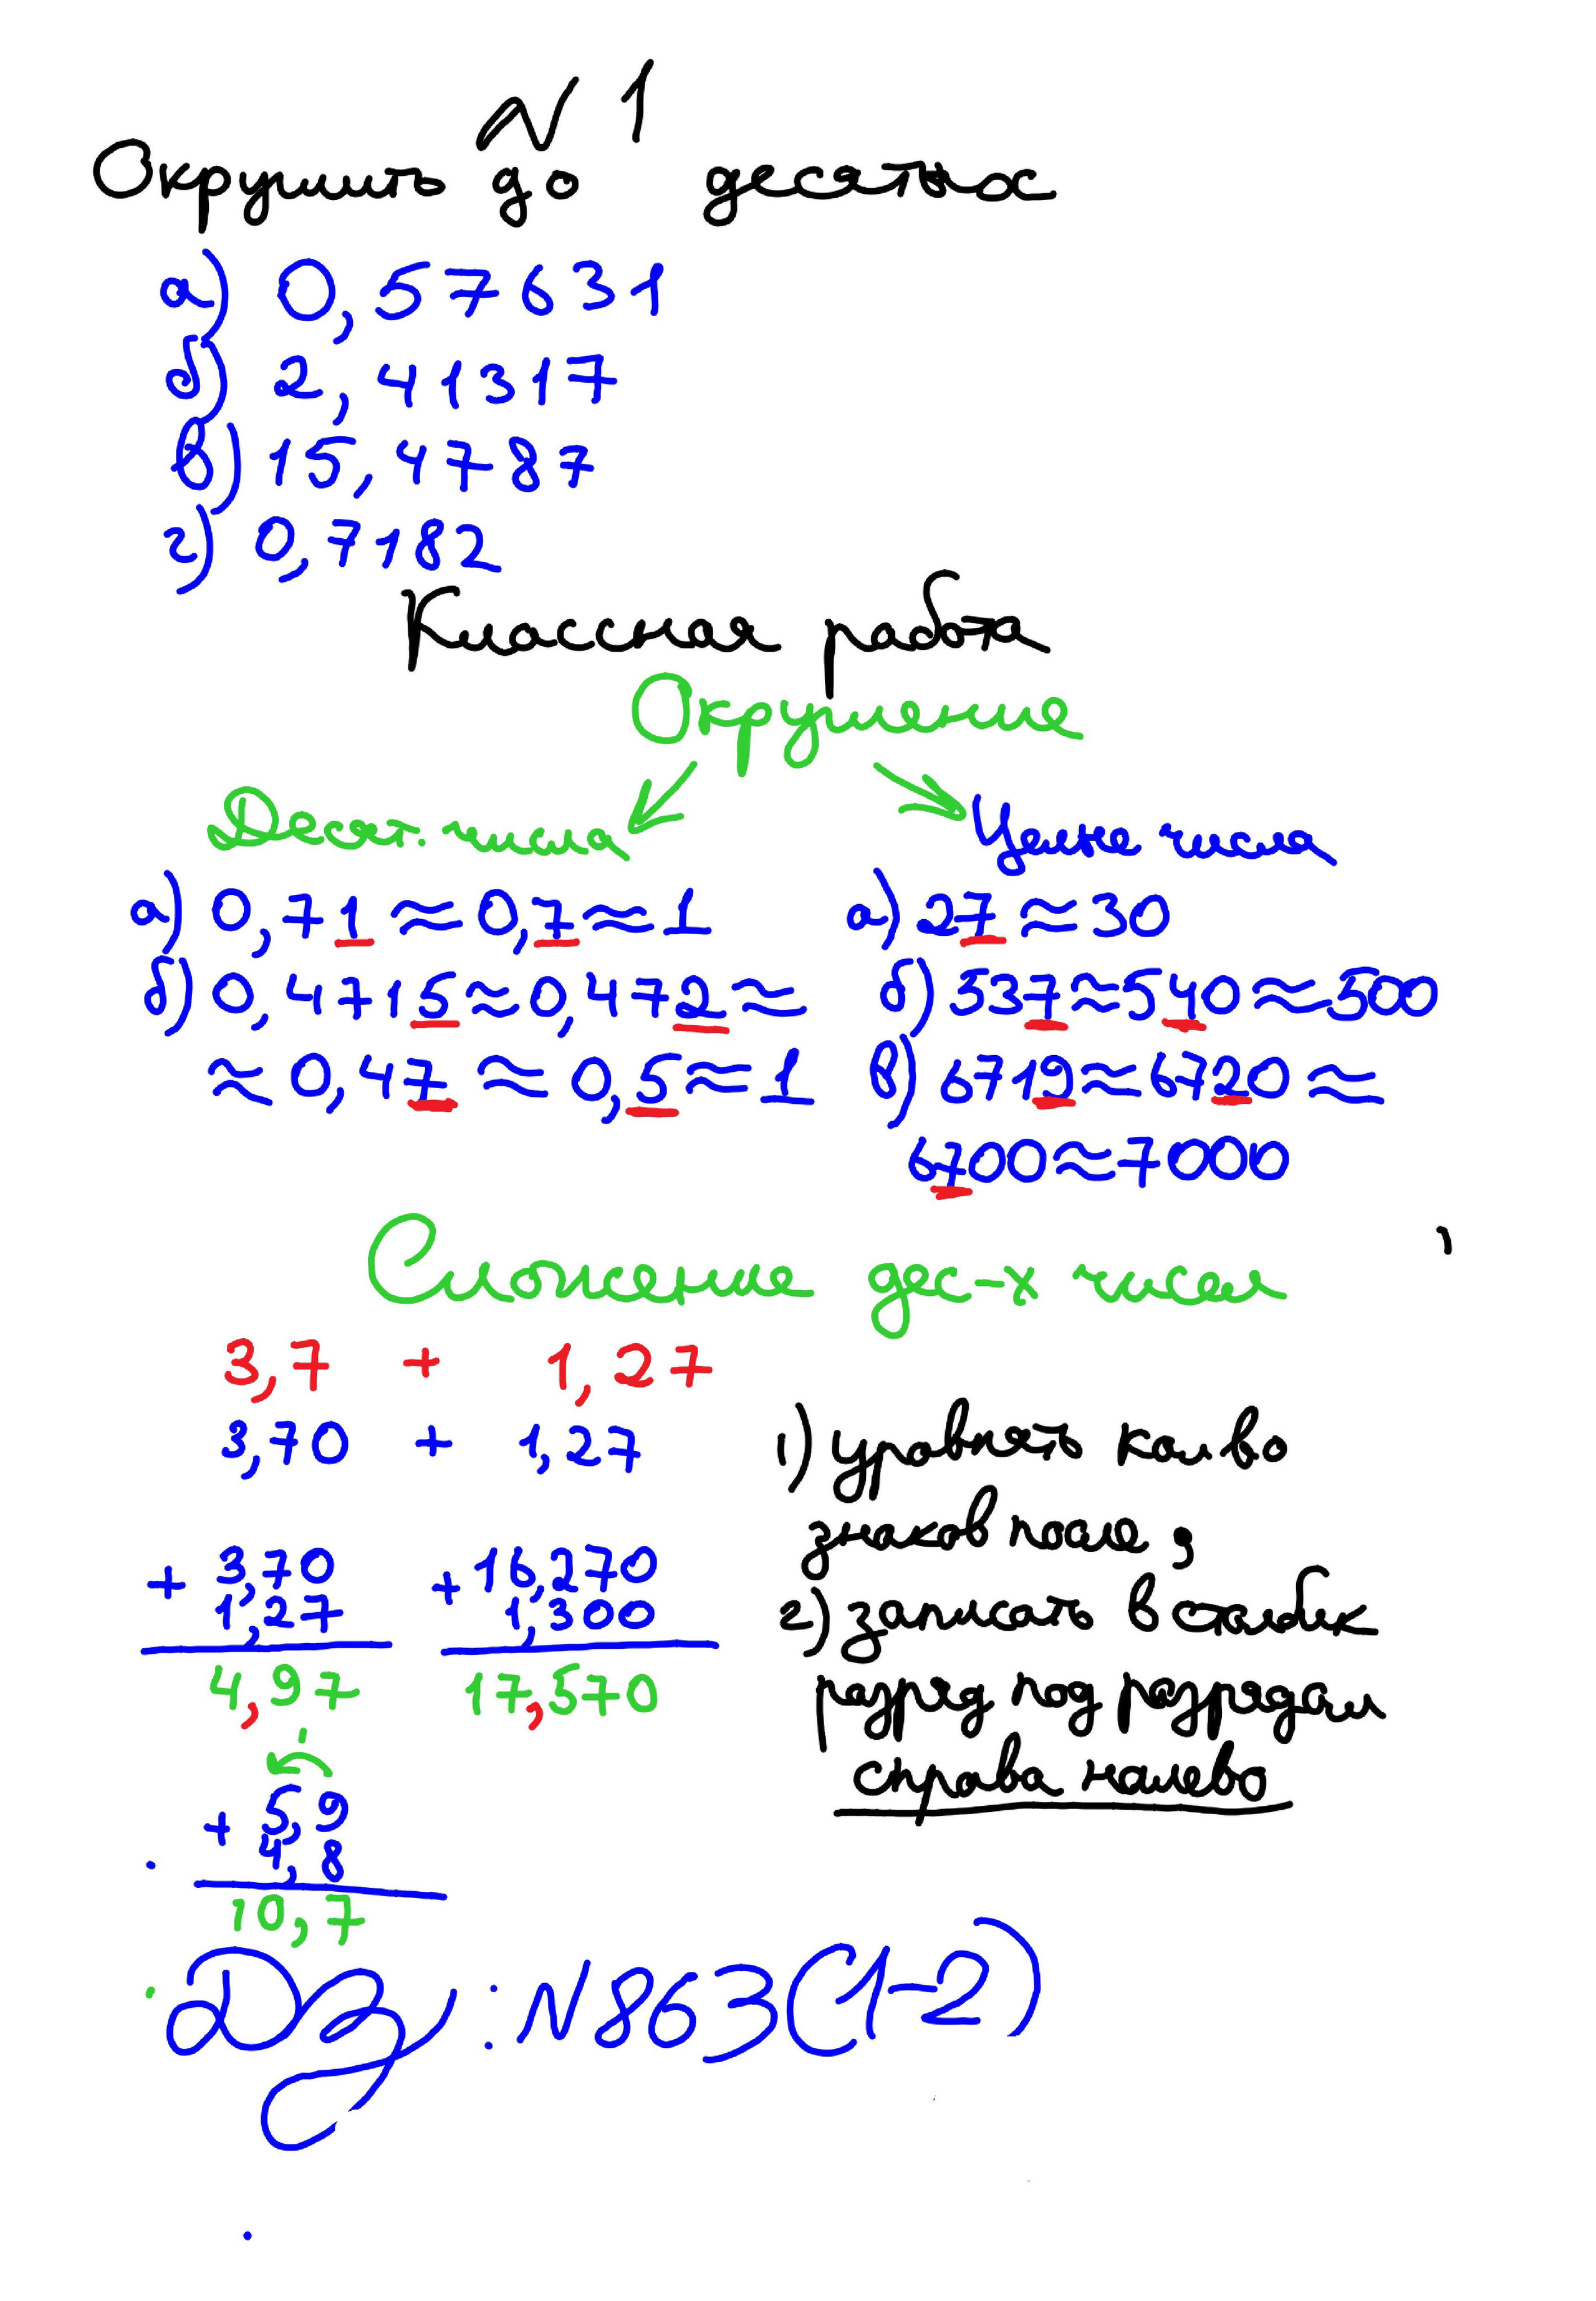 N 1
Округлить до десятых
а) 0,57631
б) 2,41317
в) 15,4787
г) 0,7182
Классная работа
Округление
Десят. числа
Целые числа
а) 0,71 ≈ 0,7 ≈ 1
б) 0,4715 ≈ 0,472 ≈
≈ 0,47 ≈ 0,5 ≈ 1
а) 27 ≈ 30
б) 537 ≈ 540 ≈ 500
в) 6719 ≈ 6720 ≈
6700 ≈ 7000
Сложение дес-х чисел
3,7 + 1,27
3,70 + 1,27
+ 3,70
1,27
4,97
+ 16,270
1,300
17,570
1) уравнять кол-во
знаков после ,
2) записать в столбик
разряд под разрядом
справа налево
1
+ 5,9
4,8
10,7
Дз: N863(1-2)